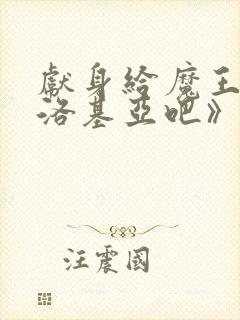 獻身給魔王
洛基亞吧》
汪震國